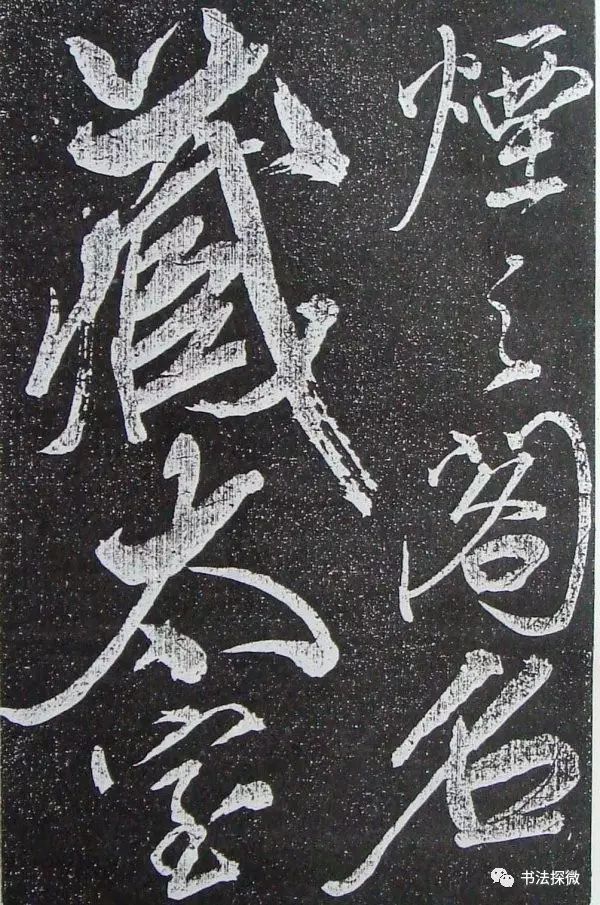 煙之閣名
藏太室
书法探微